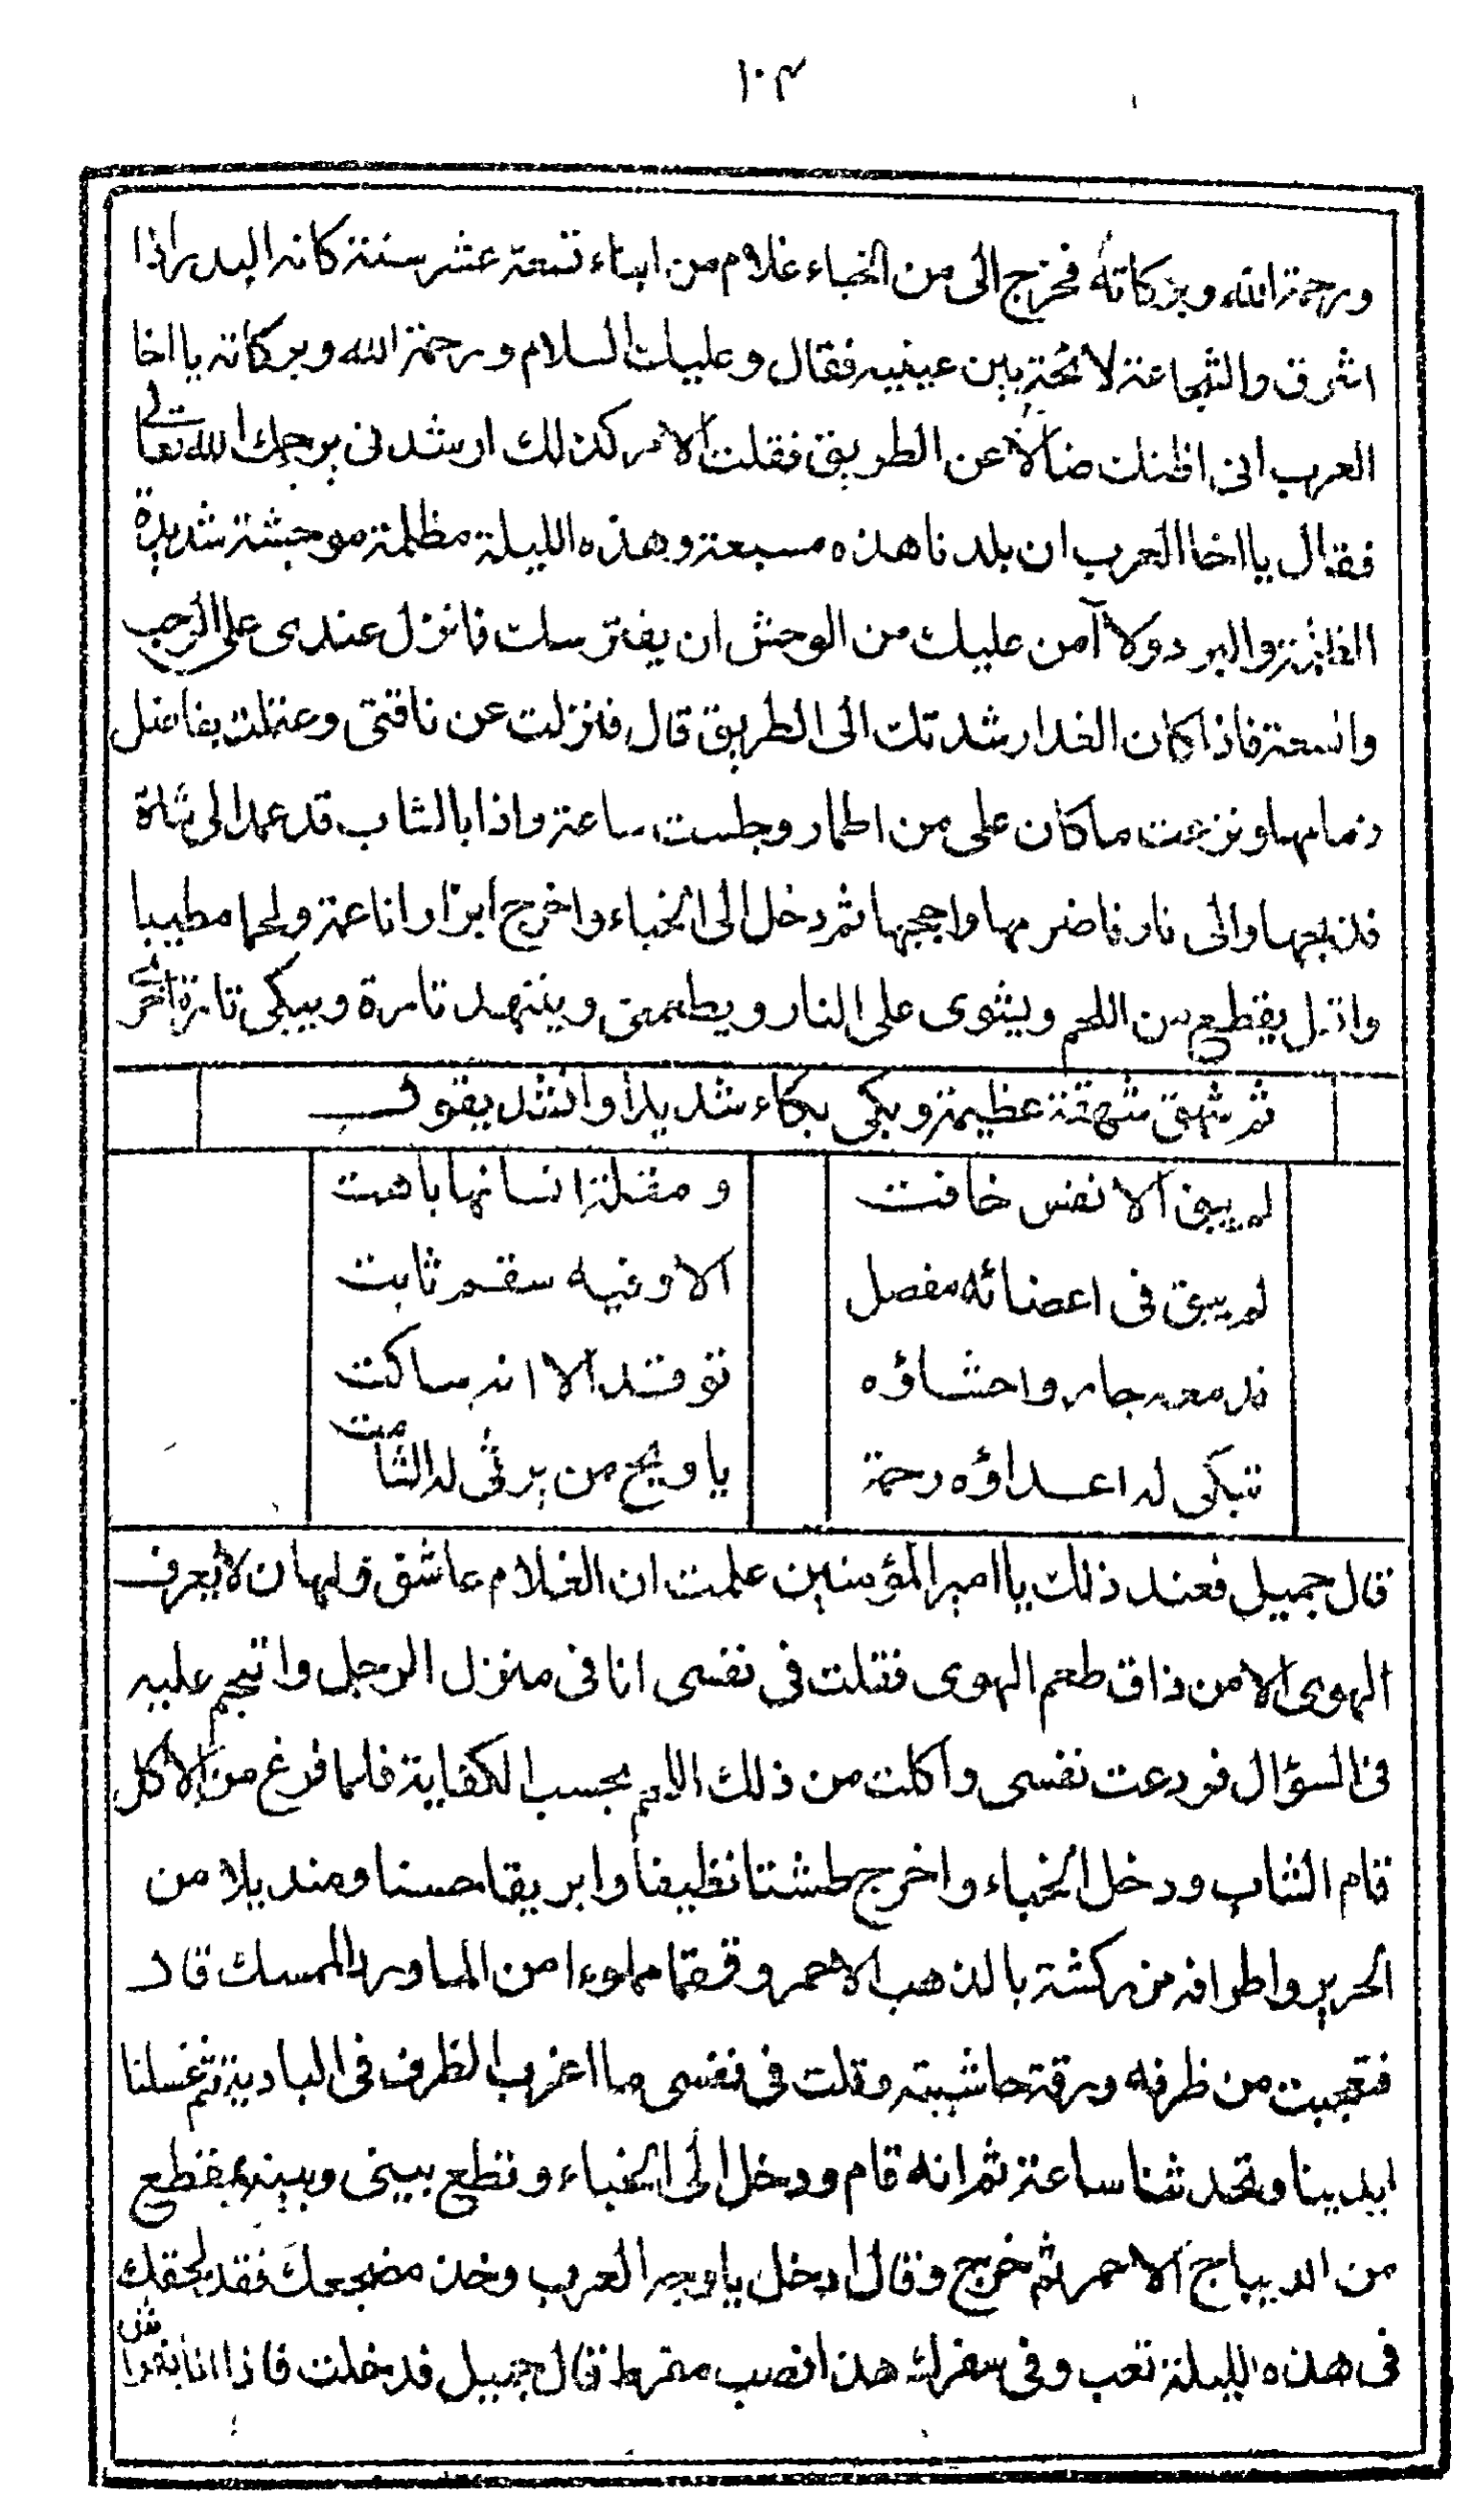 ١٠٣
ورحمة الله وبركاته فخرج الى من الخباء غلام من ابناء تسعة عشر سنة كانه البدر اذا
اشرق والشجاعة لائحة بين عينيه فقال وعليك السلام ورحمة الله وبركاته يا اخا
العرب انى اظنك ضالا عن الطريق فقلت الامر كذلك ارشدنى يرحمك الله تعالى
فقال يا اخا العرب ان بلدنا هذه مسبعة وهذه الليلة مظلمة موحشة شديدة
الظلمة والبرد ولا آمن عليك من الوحش ان يفترسك فانزل عندى على الرحب
والسعة فاذا كان الغد ارشدتك الى الطريق قال فنزلت عن ناقتى وعقلت بفاضل
زمامها ونزعت ما كان على من اطمار وجلست ساعة واذا بالشاب قد عمد الى شاة
فذبحها والى نار فاضرمها واججها ثم دخل الى الخباء واخرج ابزارا ناعمة ولحما مطيبا
واقبل يقطع من اللحم ويشوى على النار ويطعمنى ويتنهد تارة ويبكى تارة اخرى
ثم شهق شهقة عظيمة وبكى بكاء شديدا وانشد يقول
لم يبق الا نفس خافت ومقلة انسانها باهت
لم يبق فى اعضائه مفصل الا وفيه سقم ثابت
فدمعه جار واحشاؤه توقد الا انه ساكت
تبكى له اعداؤه رحمة يا ويح من يرثى له الشامت
قال جميل فعند ذلك يا امير المؤمنين علمت ان الغلام عاشق ولهان لا يعرف
الهوى الا من ذاق طعم الهوى فقلت فى نفسى انا فى منزل الرجل واتهجم عليه
فى السؤال فردعت نفسى واكلت من ذلك اللحم بحسب الكفاية فلما فرغ من الاكل
قام الشاب ودخل الخباء واخرج طشتا نظيفا وابريقا حسنا ومنديلا من
الحرير واطرافه مزركشة بالذهب الاحمر وقمقما مملوءا من الماورد الممسك قال
فتعجبت من ظرفه ورقة حاشيته وقلت فى نفسى ما اعرب الظرف فى البادية ثم غسلنا
ايدينا وتحدثنا ساعة ثم انه قام ودخل الى الخباء وقطع بينى وبينه بمقطع
من الديباج الاحمر ثم خرج وقال ادخل يا وجه العرب وخذ مضجعك فقد لحقك
فى هذه الليلة تعب وفى سفرك هذا نصب مفرط قال جميل فدخلت فاذا انا بفراش